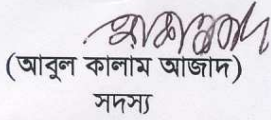 (আবুল কালাম আজাদ)
সদস্য